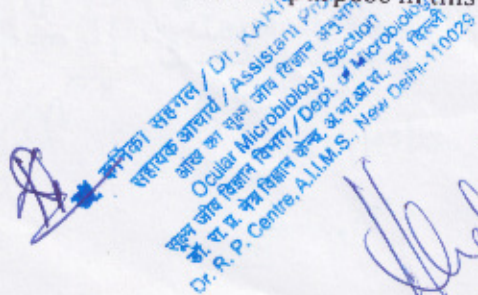 pose in this
सहगल / Dr.
सहायक आचार्य / Assistant
आख का सूक्ष्म जीव विज्ञान अनुभाग
Ocular Microbiology Section
सूक्ष्म जीव विज्ञान विभाग / Dept. of Microbiology
डॉ. रा. प्र. नेत्र विज्ञान केन्द्र, अ.भा.आ.सं., नई दिल्ली
Dr. R. P. Centre, A.I.I.M.S., New Delhi-110029